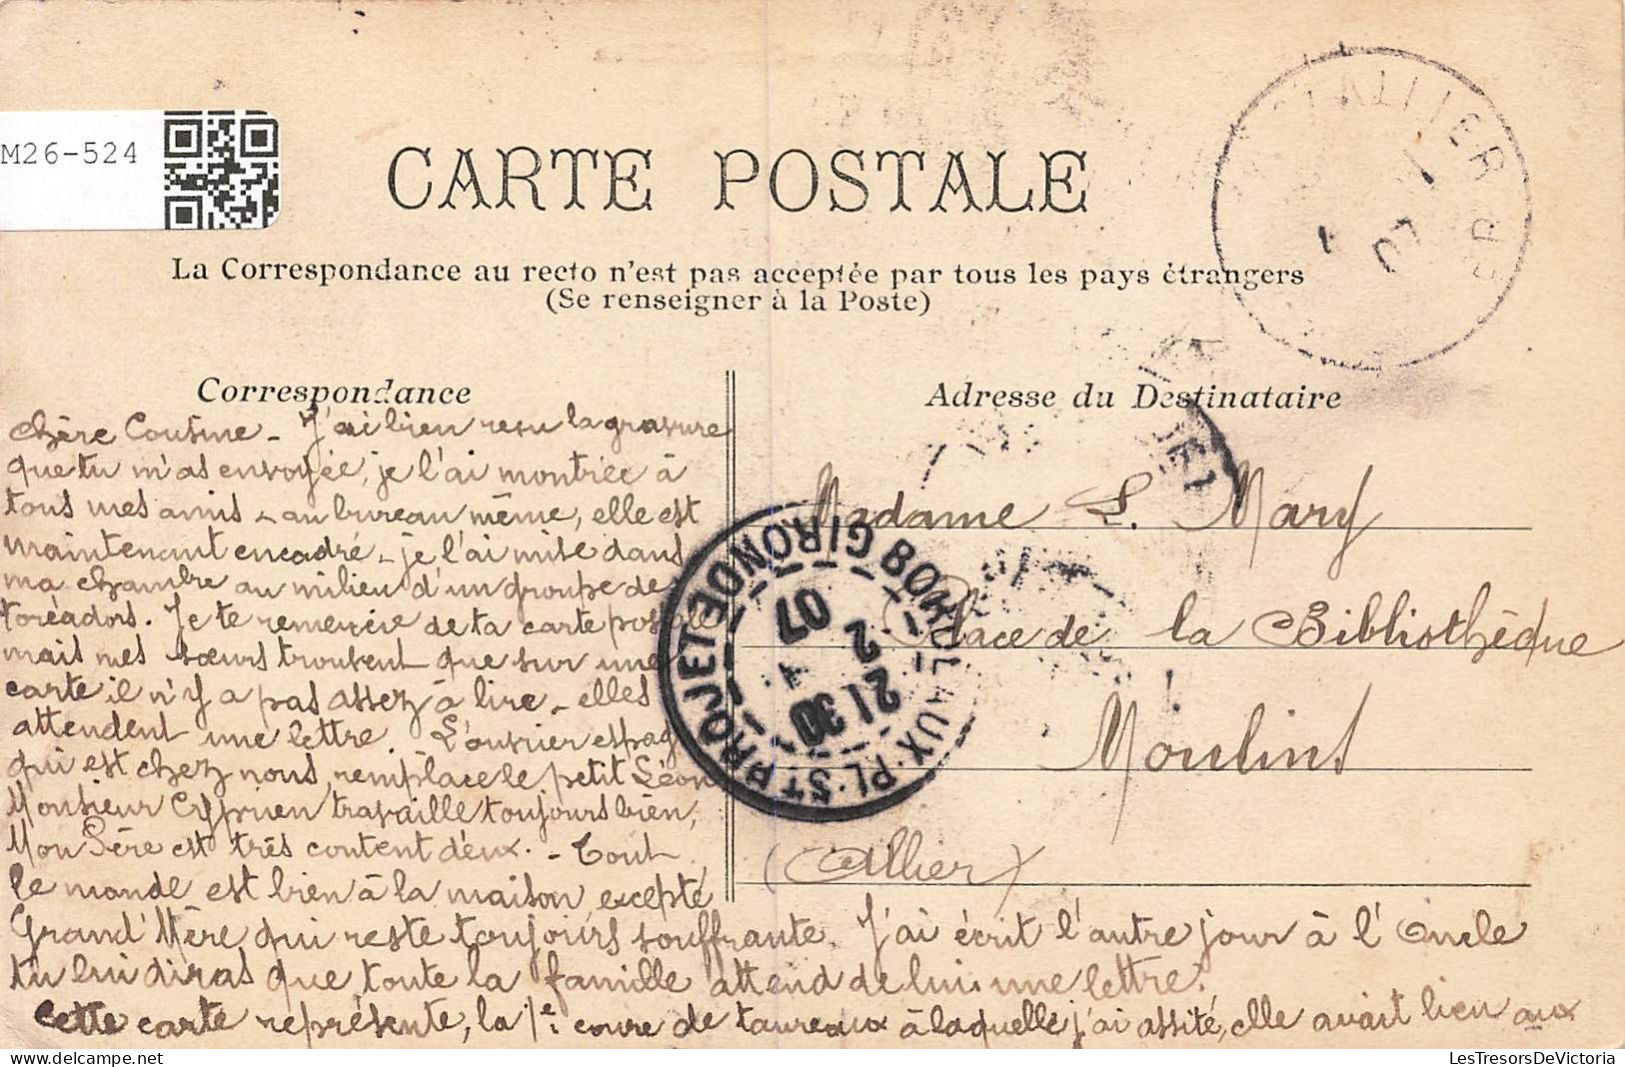 M26-524
CARTE POSTALE
La Correspondance au recto n'est pas acceptée par tous les pays étrangers
(Se renseigner à la Poste)
Correspondance
Adresse du Destinataire
chère Cousine - J'ai bien reçu la gravure
que tu m'as envoyée, je l'ai montrée à
tous mes amis - au bureau même, elle est
maintenant encadré - je l'ai mise dans
ma chambre au milieu d'un groupe de
toréadors. Je te remercie de ta carte postale
mais mes sœurs trouvent que sur une
carte il n'y a pas assez à lire - elles
attendent une lettre. L'ouvrier espag
qui est chez nous remplace le petit Léon
Monsieur Cyprien travaille toujours bien,
Mon Père est très content d'eux. - Tout
le monde est bien à la maison, excepté
Grand'Mère qui reste toujours souffrante. J'ai écrit l'autre jour à l'Oncle
tu lui diras que toute la famille attend de lui une lettre.
Cette carte représente, la 1e course de taureaux à laquelle j'ai assité, elle avait lieu aux
Madame L. Mary
Place de la Bibliothèque
Moulins
(Allier)
BORDEAUX-PL. ST PROJET GIRONDE
21 30
2
07
LesTresorsDeVictoria